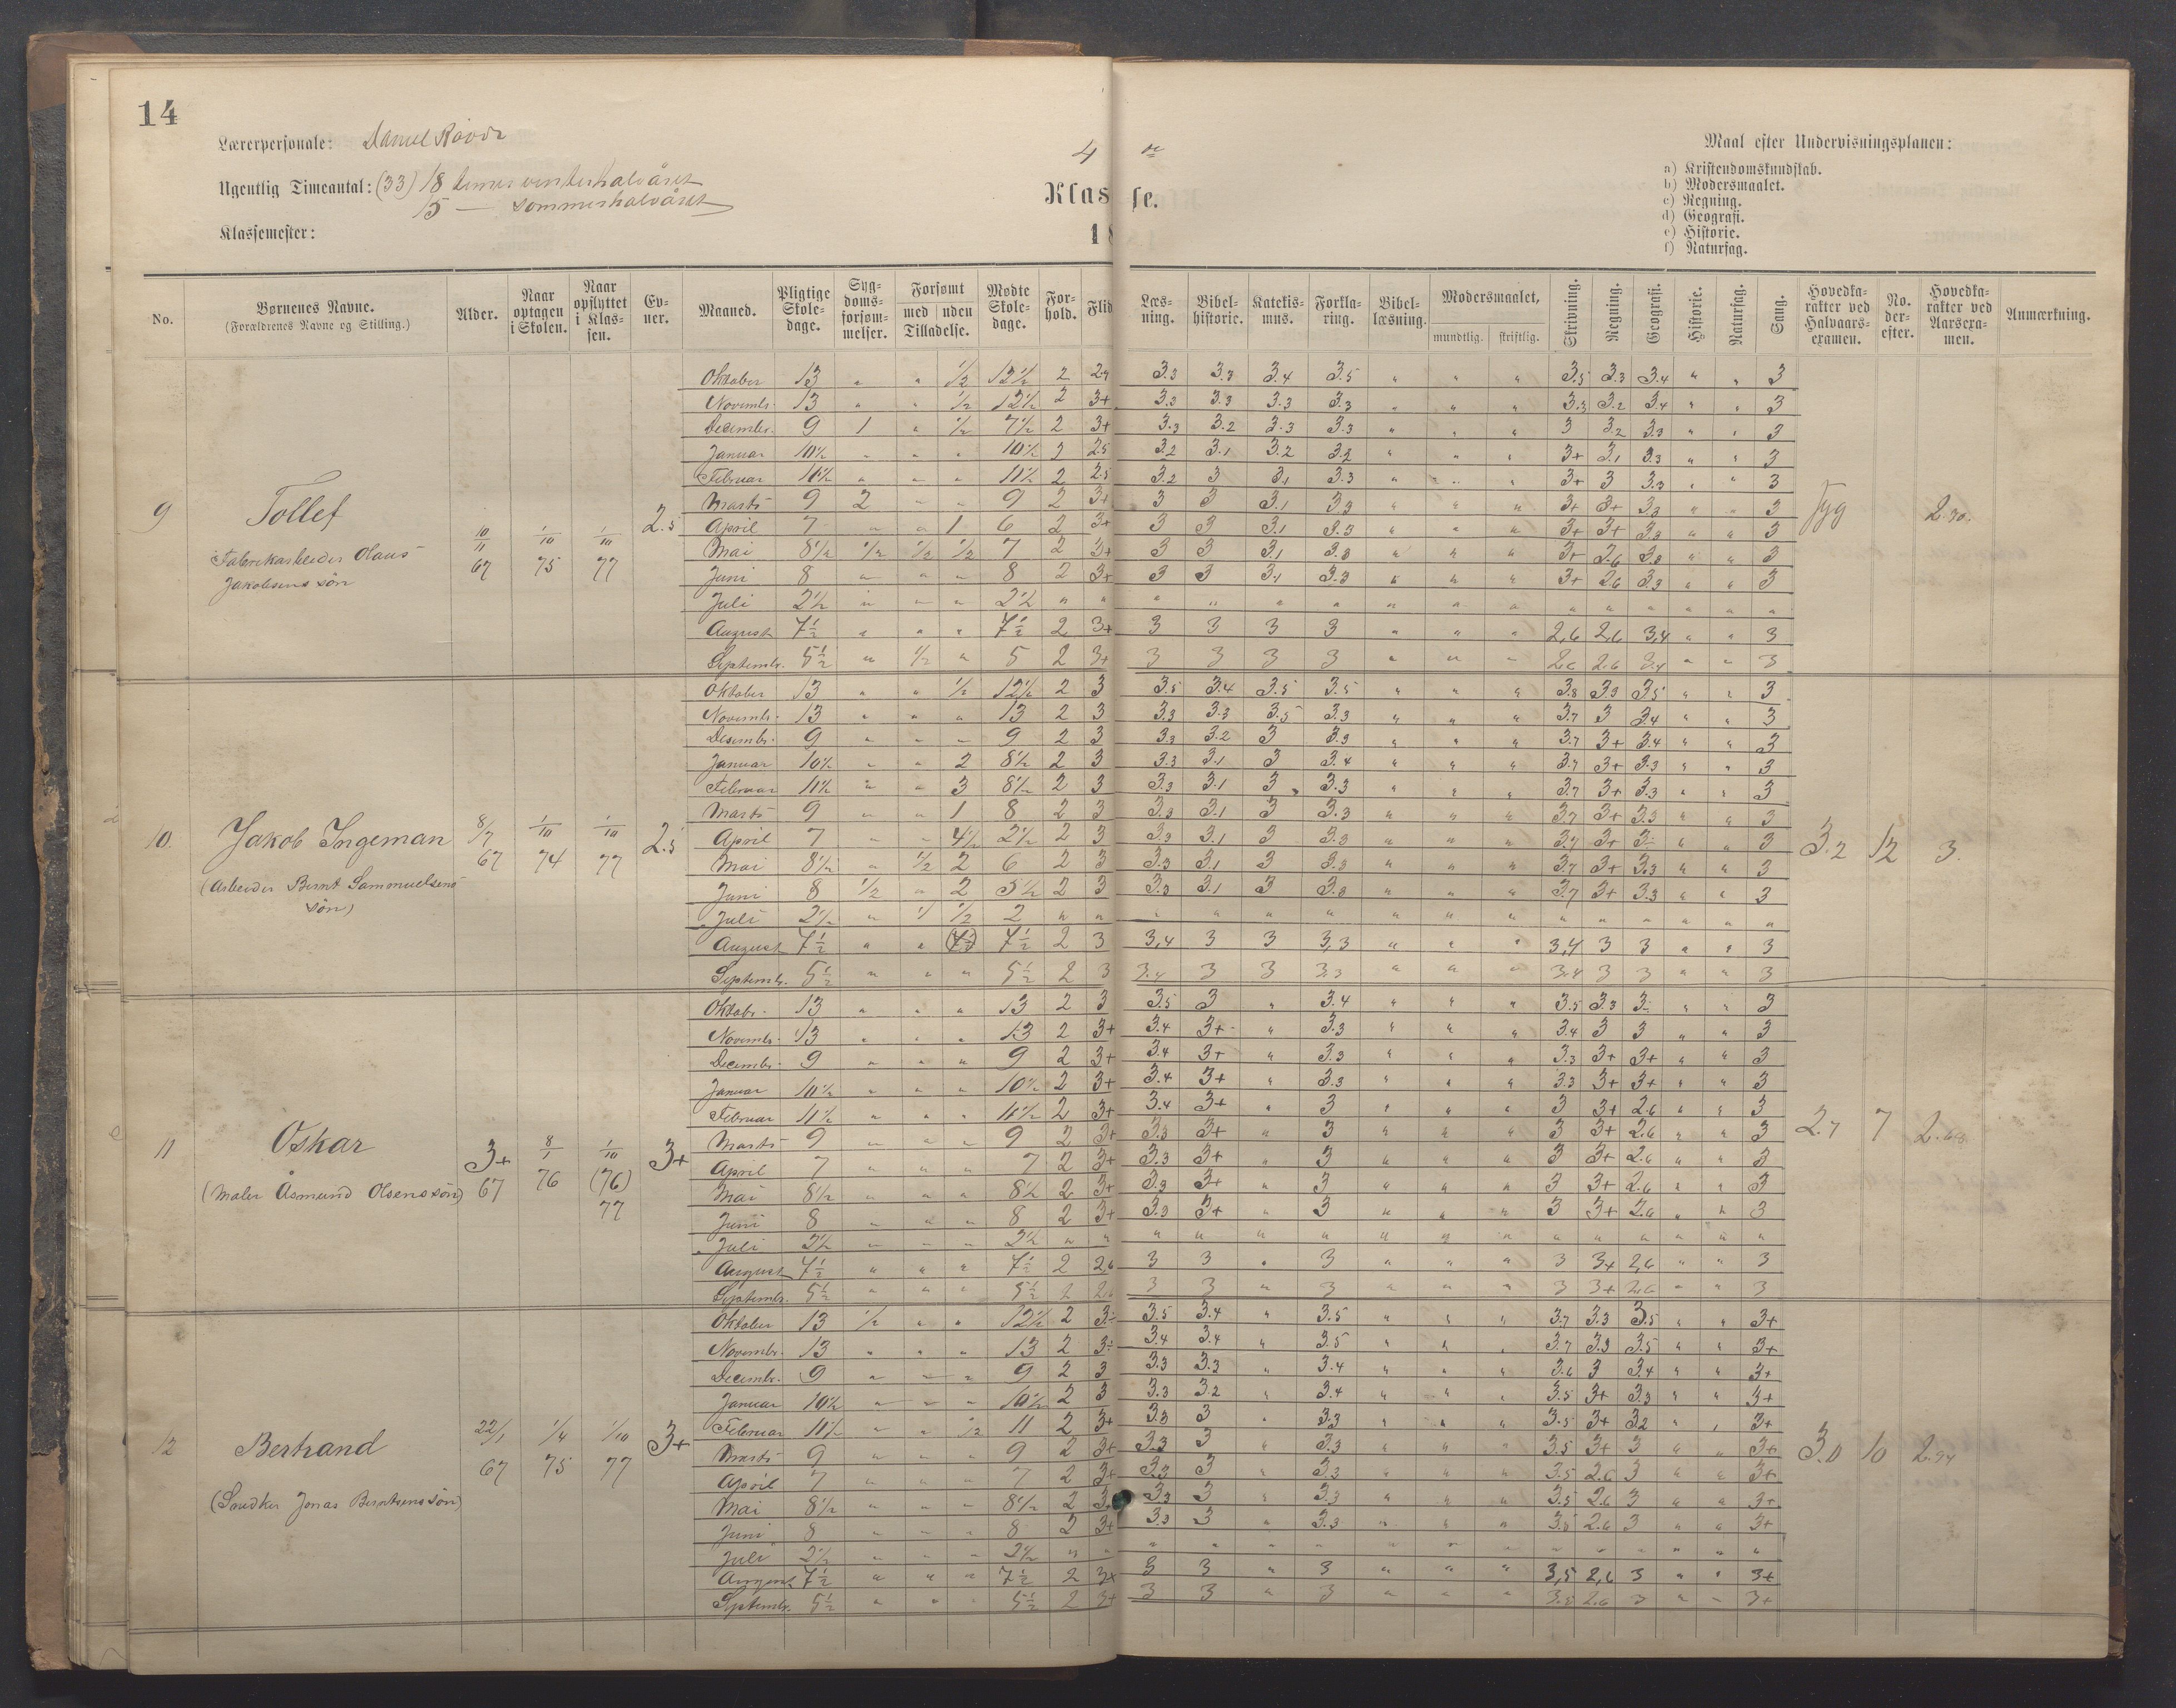 14
Lærerpersonale: Daniel
Ugentlig Timeantal: (33) 18 timer vinterhalvåret
15 — sommerhalvåret
Klassemester:
4 de
Klasse.
18
Maal efter Undervisningsplanen:
a) Kristendomskundskab.
b) Modersmaalet.
c) Regning.
d) Geografi.
e) Historie.
f) Naturfag.
No. Børnenes Navne. (Forældrenes Navne og Stilling.) Alder. Naar optagen i Skolen. Naar opflyttet i Klassen. Evner. Maaned. Pligtige Skoledage. Sygdomsforsømmelser. Forsømt med uden Tilladelse. Mødte Skoledage. Forhold. Flid Læsning. Bibelhistorie. Katekismus. Forklaring. Bibellæsning. Modersmaalet, mundtlig. skriftlig. Skrivning. Regning. Geografi. Historie. Naturfag. Sang. Hovedkarakter ved Halvaarsexamen. No. derefter. Hovedkarakter ved Aarsexamen. Anmærkning.
9 Tollef
Fabrikarbeider Olaus
Jakobsens søn
10/11 67 1/10 75 1/10 77 2.5
Oktober 13 " " 1/2 12 1/2 2 3.3 3.3 3.4 3.5 " " " 3.5 3.3 3.4 " " 3
Novembr. 13 " " 1/2 12 1/2 2 3+ 3.3 3.3 3.3 3.3 " " " 3.3 3.2 3.4 " " 3
Decembr. 9 1 " 1/2 7 1/2 2 3+ 3.3 3.2 3.3 3.3 " " " 3 3.2 3.3 " " 3
Januar 10 1/2 " " " 10 1/2 2 2.5 3.2 3.1 3.2 3.2 " " " 3+ 3.1 3.3 " " 3
Februar 11 1/2 " " " 11 1/2 2 2.5 3.2 3 3.1 3.3 " " " 3+ 3 3.3 " " 3
Marts 9 2 " " 9 2 3+ 3 3 3.1 3.3 " " " 3+ 3+ 3.3 " " 3
April 7 " " 1 6 2 3+ 3 3 3.1 3.3 " " " 3+ 3+ 3.3 " " 3
Mai 8 1/2 1/2 1/2 1/2 7 2 3+ 3 3 3.1 3.3 " " " 3+ 2.6 3.3 " " 3
Juni 8 " " " 8 2 3+ 3 3 3.1 3.3 " " " 3+ 2.6 3.3 " " 3
Juli 2 1/2 " " " 2 1/2 " " " " " " " " " " " " " " "
August 7 1/2 " " " 7 1/2 2 3+ 3 3 3 3 " " " 2,6 2,6 3,4 " " 3
Septembr. 5 1/2 " 1/2 " 5 2 3+ 3 3 3 3 " " " 2.6 2.6 3.4 " " 3
syg 2.30.
10. Jakob Ingeman
(Arbeider Bernt Sammuelsens
søn)
8/7 67 1/10 74 1/10 77 2.5
Oktober 13 " " 1/2 12 1/2 2 3 3.5 3.4 3.5 3.5 " " " 3.8 3.3 3.5 " " 3
Novembr. 13 " " " 13 2 3 3.3 3.3 3.5 3.3 " " " 3.7 3 3.4 " " 3
Desembr. 9 " " " 9 2 3 3.3 3.2 3 3.3 " " " 3.7 3+ 3.4 " " 3
Januar 10 1/2 " " 2 8 1/2 2 3 3.3 3.1 3 3.4 " " " 3.7 3+ 3.3 " " 3
Februar 11 1/2 " " 3 8 1/2 2 3 3.3 3.1 3 3.3 " " " 3.7 3+ 3.3 " " 3
Marts 9 " " 1 8 2 3 3.3 3.1 3 3.3 " " " 3.7 3+ 3.3 " " 3
April 7 " " 4 1/2 2 1/2 2 3 3.3 3.1 3 3.3 " " " 3.7 3+ " " 3
Mai 8 1/2 " 1/2 2 6 2 3 3.3 3.1 3 3.3 " " " 3.7 3+ 3.3 " " 3
Juni 8 1/2 " 2 5 1/2 2 3 3.3 3.1 3 3.3 " " " 3.7 3+ 3.3 " " 3
Juli 2 1/2 " " 1/2 2 " " " " " " " " " " " " " " "
August 7 1/2 " " 7 1/2 2 3 3,4 3 3 3,3 " " " 3,4 3 3 " " 3
Septembr. 5 1/2 " " " 5 1/2 2 3 3.4 3 3 3.3 " " " 3.4 3 3 " " 3
3.2 12 3.
11 Oskar
(Maler Åsmund Olsens søn)
67 8/1 76 1/10 (76) 77 3+
Oktobr. 13 " " " 13 2 3 3.5 3 " 3.4 " " " 3.5 3.3 " " 3
Novembr. 13 " " " 13 2 3+ 3.4 3+ " 3.3 " " " 3.4 3 3 " " 3
Decembr. 9 " " " 9 2 3+ 3.4 3+ " 3.3 " " " 3.3 3+ 3+ " " 3
Januar 10 1/2 " " " 10 1/2 2 3+ 3.4 3+ " 3.3 " " " 3.3 3+ 3+ " " 3
Februar 11 1/2 " " " 11 1/2 2 3+ 3.4 3+ " 3 " " " 3 3+ 2.6 " " 3
Marts 9 " " " 9 2 3+ 3.3 3+ " 3 " " " 3 3+ 2.6 " " 3
April 7 " " " 7 2 3+ 3.3 3+ " 3 " " " 3 3+ 2.6 " " 3
Mai 8 1/2 " " " 8 1/2 2 3+ 3.3 3+ " 3 " " " 3 3+ 2.6 " " 3
Juni 8 " " " 8 2 3+ 3.3 3+ " 3 " " " 3 3+ 2.6 " " 3
Juli 2 1/2 " " " 2 1/2 " " " " " " " " " " " " " " "
August 7 1/2 " " " 7 1/2 2 2,6 3 3 " 3 " " " 3 3+ 2,6 " " 3
Septembr. 5 1/2 " " " 5 1/2 2 3 3 " 3 " " " 3 3+ 2,6 " " 3
2.7 7
12 Bertrand
(Snedker Jonas Berntsens søn)
22/1 67 1/4 75 1/10 77 3+
Oktober 13 1/2 " " 12 1/2 2 3.5 3.4 " 3.5 " " " 3.7 3.3 3.5 " " 3+
Novembr. 13 " " " 13 2 3.4 3.4 " 3.5 " " " 3.7 3.3 3.5 " " 3+
Decembr. 9 " " " 9 2 3 3.3 3.3 " 3.4 " " " 3.6 3 3.4 " " 3+
Januar 10 1/2 " " " 10 1/2 2 3 3.3 3.2 " 3.4 " " " 3.5 3+ 3.3 " " 3+
Februar 11 1/2 " " 1/2 11 2 3+ 3.3 3 " 3.3 " " " 3.5 3+ 3.2 " " 3+
Marts 9 " " " 9 2 3+ 3.3 3 " 3.3 " " " 3.5 3+ 3 " " 3+
April 7 " " " 7 2 3+ 3.3 3 " 3.3 " " " 3.5 2.6 3 " " 3+
Mai 8 1/2 " " " 8 1/2 2 3.3 3 " 3.3 " " " 3.5 2.6 3 " " 3+
Juni 8 " " " 8 2 3+ 3.3 3 " 3.3 " " " 3.5 2.6 3 " " 3+
Juli 2 1/2 " " " 2 1/2 " " " " " " " " " " " " " " "
August 7 1/2 " " " 7 1/2 2 3+ 3 3 " 3 " " " 3,5 2,6 3 " " 3+
Septembr. 5 1/2 " " " 5 1/2 2 3+ 3 3 " 3 " " " 3.5 2.6 3 " " 3+
3.0 10 2.94